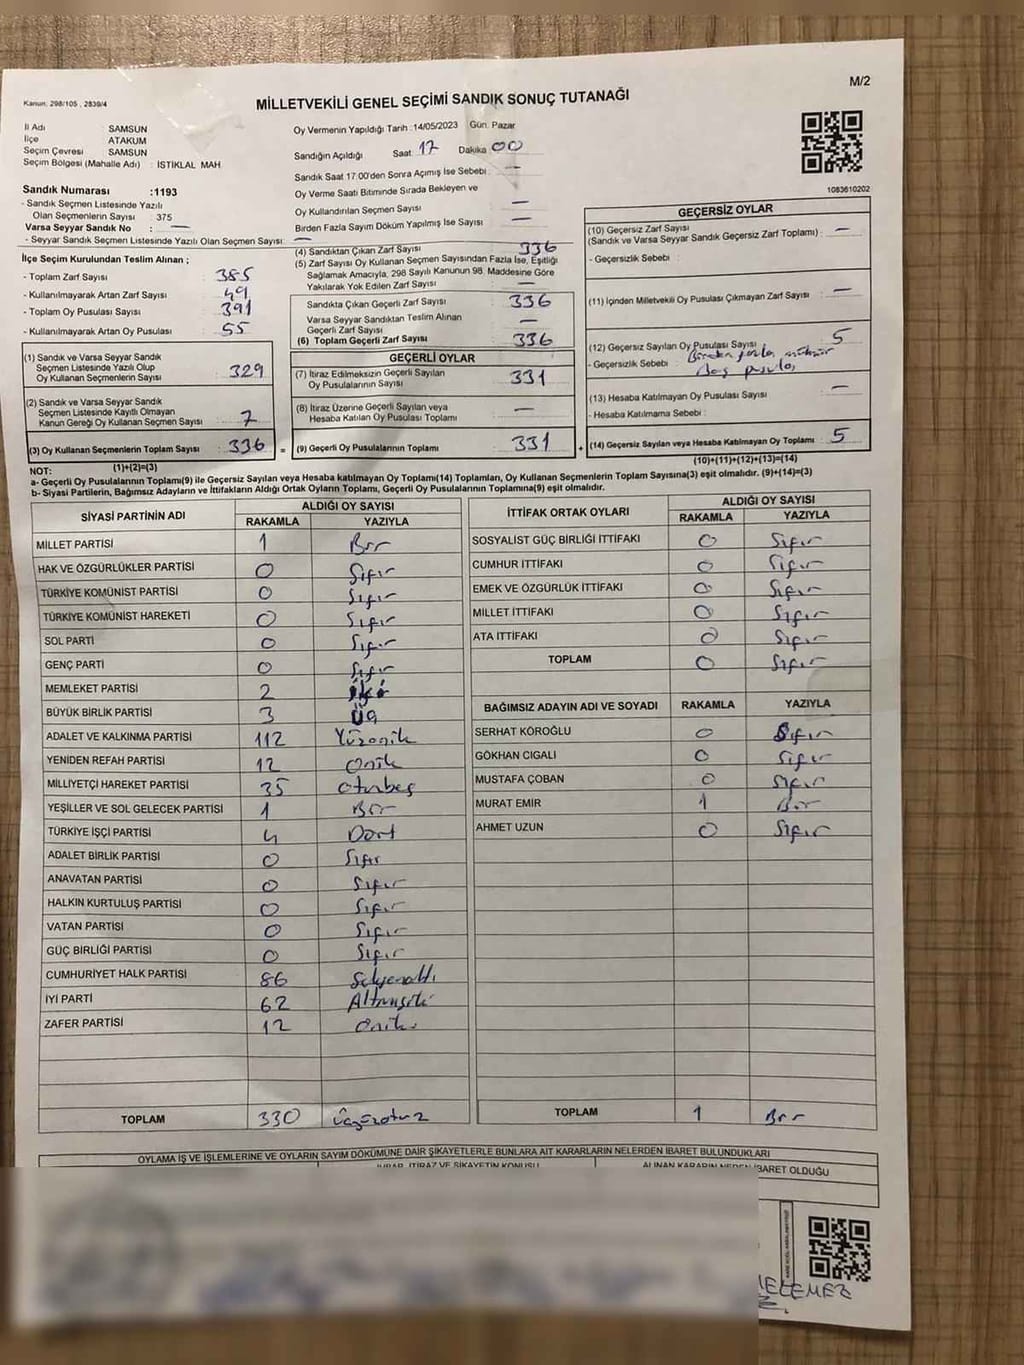 M/2
Kanun, 298/105 , 2839/4
MİLLETVEKİLİ GENEL SEÇİMİ SANDIK SONUÇ TUTANAĞI
İl Adı : SAMSUN
İlçe : ATAKUM
Seçim Çevresi : SAMSUN
Seçim Bölgesi (Mahalle Adı) : İSTİKLAL MAH.
Sandık Numarası :1193
- Sandık Seçmen Listesinde Yazılı
Olan Seçmenlerin Sayısı : 375
Varsa Seyyar Sandık No : —
- Seyyar Sandık Seçmen Listesinde Yazılı Olan Seçmen Sayısı: —
Oy Vermenin Yapıldığı Tarih :14/05/2023 Gün: Pazar
Sandığın Açıldığı Saat 17 Dakika 00
Sandık Saat 17:00'den Sonra Açımış İse Sebebi : —
Oy Verme Saati Bitiminde Sırada Bekleyen ve
Oy Kullandırılan Seçmen Sayısı : —
Birden Fazla Sayım Döküm Yapılmış İse Sayısı : —
1083610202
İlçe Seçim Kurulundan Teslim Alınan ;
- Toplam Zarf Sayısı : 385
- Kullanılmayarak Artan Zarf Sayısı : 49
- Toplam Oy Pusulası Sayısı : 391
- Kullanılmayarak Artan Oy Pusulası : 55
(1) Sandık ve Varsa Seyyar Sandık
Seçmen Listesinde Yazılı Olup
Oy Kullanan Seçmenlerin Sayısı : 329
(2) Sandık ve Varsa Seyyar Sandık
Seçmen Listesinde Kayıtlı Olmayan
Kanun Gereği Oy Kullanan Seçmen Sayısı : 7
(3) Oy Kullanan Seçmenlerin Toplam Sayısı : 336
(1)+(2)=(3)
(4) Sandıktan Çıkan Zarf Sayısı : 336
(5) Zarf Sayısı Oy Kullanan Seçmen Sayısından Fazla İse, Eşitliği
Sağlamak Amacıyla, 298 Sayılı Kanunun 98. Maddesine Göre
Yakılarak Yok Edilen Zarf Sayısı : —
Sandıkta Çıkan Geçerli Zarf Sayısı : 336
Varsa Seyyar Sandıktan Teslim Alınan
Geçerli Zarf Sayısı : —
(6) Toplam Geçerli Zarf Sayısı : 336
GEÇERLİ OYLAR
(7) İtiraz Edilmeksizin Geçerli Sayılan
Oy Pusulalarının Sayısı : 331
(8) İtiraz Üzerine Geçerli Sayılan veya
Hesaba Katılan Oy Pusulası Toplamı : —
= (9) Geçerli Oy Pusulalarının Toplamı : 331
GEÇERSİZ OYLAR
(10) Geçersiz Zarf Sayısı
(Sandık ve Varsa Seyyar Sandık Geçersiz Zarf Toplamı) : —
- Geçersizlik Sebebi :
(11) İçinden Milletvekili Oy Pusulası Çıkmayan Zarf Sayısı : —
(12) Geçersiz Sayılan Oy Pusulası Sayısı : 5
- Geçersizlik Sebebi : Birden fazla mühür
Boş pusula,
(13) Hesaba Katılmayan Oy Pusulası Sayısı : —
- Hesaba Katılmama Sebebi :
+ (14) Geçersiz Sayılan veya Hesaba Katılmayan Oy Toplamı : 5
(10)+(11)+(12)+(13)=(14)
NOT:
a- Geçerli Oy Pusulalarının Toplamı(9) ile Geçersiz Sayılan veya Hesaba katılmayan Oy Toplamı(14) Toplamları, Oy Kullanan Seçmenlerin Toplam Sayısına(3) eşit olmalıdır. (9)+(14)=(3)
b- Siyasi Partilerin, Bağımsız Adayların ve İttifakların Aldığı Ortak Oyların Toplamı, Geçerli Oy Pusulalarının Toplamına(9) eşit olmalıdır.
SİYASİ PARTİNİN ADI ALDIĞI OY SAYISI
RAKAMLA YAZIYLA
MİLLET PARTİSİ 1 Bir
HAK VE ÖZGÜRLÜKLER PARTİSİ 0 Sıfır
TÜRKİYE KOMÜNİST PARTİSİ 0 Sıfır
TÜRKİYE KOMÜNİST HAREKETİ 0 Sıfır
SOL PARTİ 0 Sıfır
GENÇ PARTİ 0 Sıfır
MEMLEKET PARTİSİ 2 İki
BÜYÜK BİRLİK PARTİSİ 3 Üç
ADALET VE KALKINMA PARTİSİ 112 Yüzoniki
YENİDEN REFAH PARTİSİ 12 Oniki
MİLLİYETÇİ HAREKET PARTİSİ 35 Otuzbeş
YEŞİLLER VE SOL GELECEK PARTİSİ 1 Bir
TÜRKİYE İŞÇİ PARTİSİ 4 Dört
ADALET BİRLİK PARTİSİ 0 Sıfır
ANAVATAN PARTİSİ 0 Sıfır
HALKIN KURTULUŞ PARTİSİ 0 Sıfır
VATAN PARTİSİ 0 Sıfır
GÜÇ BİRLİĞİ PARTİSİ 0 Sıfır
CUMHURİYET HALK PARTİSİ 86 Seksenaltı
İYİ PARTİ 62 Altmışiki
ZAFER PARTİSİ 12 Oniki
TOPLAM 330 Üçyüzotuz
İTTİFAK ORTAK OYLARI ALDIĞI OY SAYISI
RAKAMLA YAZIYLA
SOSYALİST GÜÇ BİRLİĞİ İTTİFAKI 0 Sıfır
CUMHUR İTTİFAKI 0 Sıfır
EMEK VE ÖZGÜRLÜK İTTİFAKI 0 Sıfır
MİLLET İTTİFAKI 0 Sıfır
ATA İTTİFAKI 0 Sıfır
TOPLAM 0 Sıfır
BAĞIMSIZ ADAYIN ADI VE SOYADI RAKAMLA YAZIYLA
SERHAT KÖROĞLU 0 Sıfır
GÖKHAN CIGALI 0 Sıfır
MUSTAFA ÇOBAN 0 Sıfır
MURAT EMİR 1 Bir
AHMET UZUN 0 Sıfır
TOPLAM 1 Bir
OYLAMA İŞ VE İŞLEMLERİNE VE OYLARIN SAYIM DÖKÜMÜNE DAİR ŞİKAYETLERLE BUNLARA AİT KARARLARIN NELERDEN İBARET BULUNDUKLARI
İTİRAZ VE ŞİKAYETİN KONUSU
ALINAN KARARIN NEDEN İBARET OLDUĞU